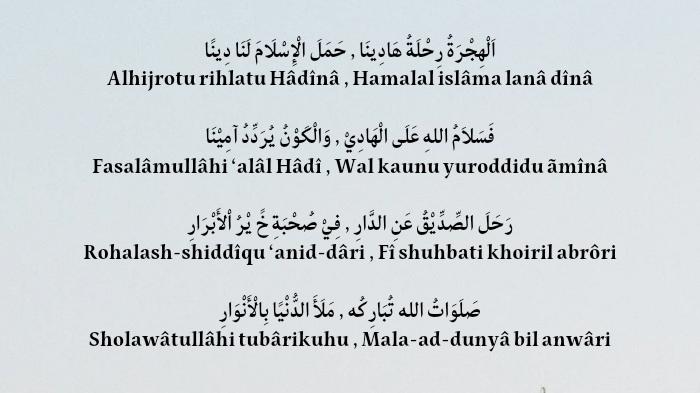 اَلْهِجْرَةُ رِحْلَةُ هَادِينَا , حَمَلَ الْإِسْلَامَ لَنَا دِينًا
Alhijrotu rihlatu Hâdînâ , Hamalal islâma lanâ dînâ
فَسَلاَمُ اللهِ عَلَى الْهَادِيْ , وَالْكَوْنُ يُرَدِّدُ آمِيْنَا
Fasalâmullâhi ‘alâl Hâdî , Wal kaunu yuroddidu ãmînâ
رَحَلَ الصِّدِّيْقُ عَنِ الدَّارِ , فِيْ صُحْبَةِ خًَيْرُ اْلأَبْرَارِ
Rohalash-shiddîqu ‘anid-dâri , Fî shuhbati khoiril abrôri
صَلَوَاتُ الله تُبَارِكُه , مَلَأَ الدُّنْيًا بِالْأَنْوَارِ
Sholawâtullâhi tubârikuhu , Mala-ad-dunyâ bil anwâri